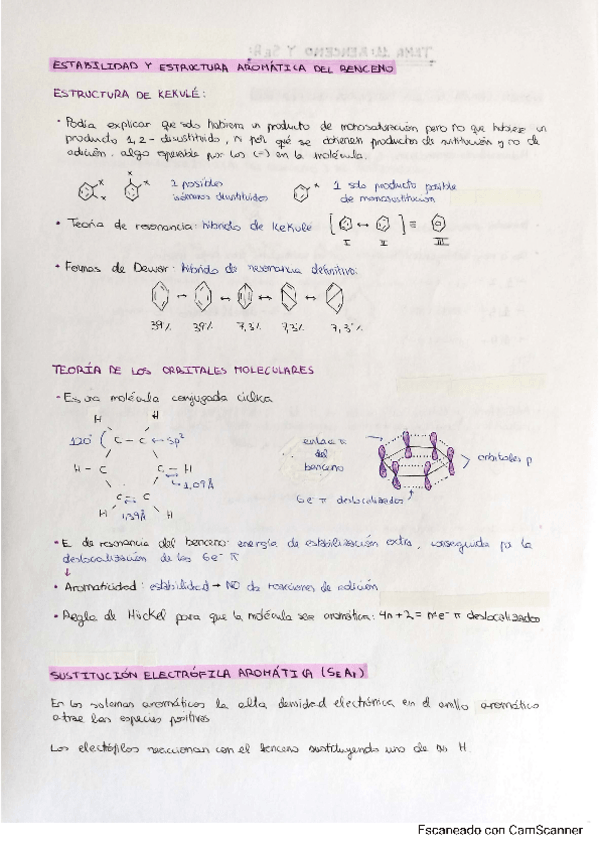 ESTABILIDAD Y ESTRUCTURA AROMÁTICA DEL BENCENO
ESTRUCTURA DE KEKULÉ:
• Podía explicar que solo hubiera un producto de monosustitución pero no que hubiese un
producto 1,2-disustituido, ni por qué se obtienen productos de sustitución y no de
adición. algo esperable por los (=) en la molécula.
x x x x x
2 posibles 1 solo producto posible
isómeros disustituidos de monosustitución
• Teoría de resonancia: híbrido de Kekulé [ ↔ ] ≡
I II III
• Formas de Dewar: híbrido de resonancia definitivo:
39% 39% 7,3% 7,3% 7,3%
TEORÍA DE LOS ORBITALES MOLECULARES
• Es una molécula conjugada cíclica
H H
120° ( C - C ← sp² enlace π
del
H - C C - H benceno orbitales p
1,09Å
C = C 6e⁻ π deslocalizados
H 1,39Å H
• E. de resonancia del benceno: energía de estabilización extra, conseguida por la
deslocalización de los 6e⁻ π
↓
• Aromaticidad: estabilidad → NO da reacciones de adición
• Regla de Hückel para que la molécula sea aromática: 4n+2 = nºe⁻ π deslocalizados
SUSTITUCIÓN ELECTRÓFILA AROMÁTICA (SEAr)
En los sistemas aromáticos la alta densidad electrónica en el anillo aromático
atrae las especies positivas
Los electrófilos reaccionan con el benceno sustituyendo uno de sus H.
Escaneado con CamScanner